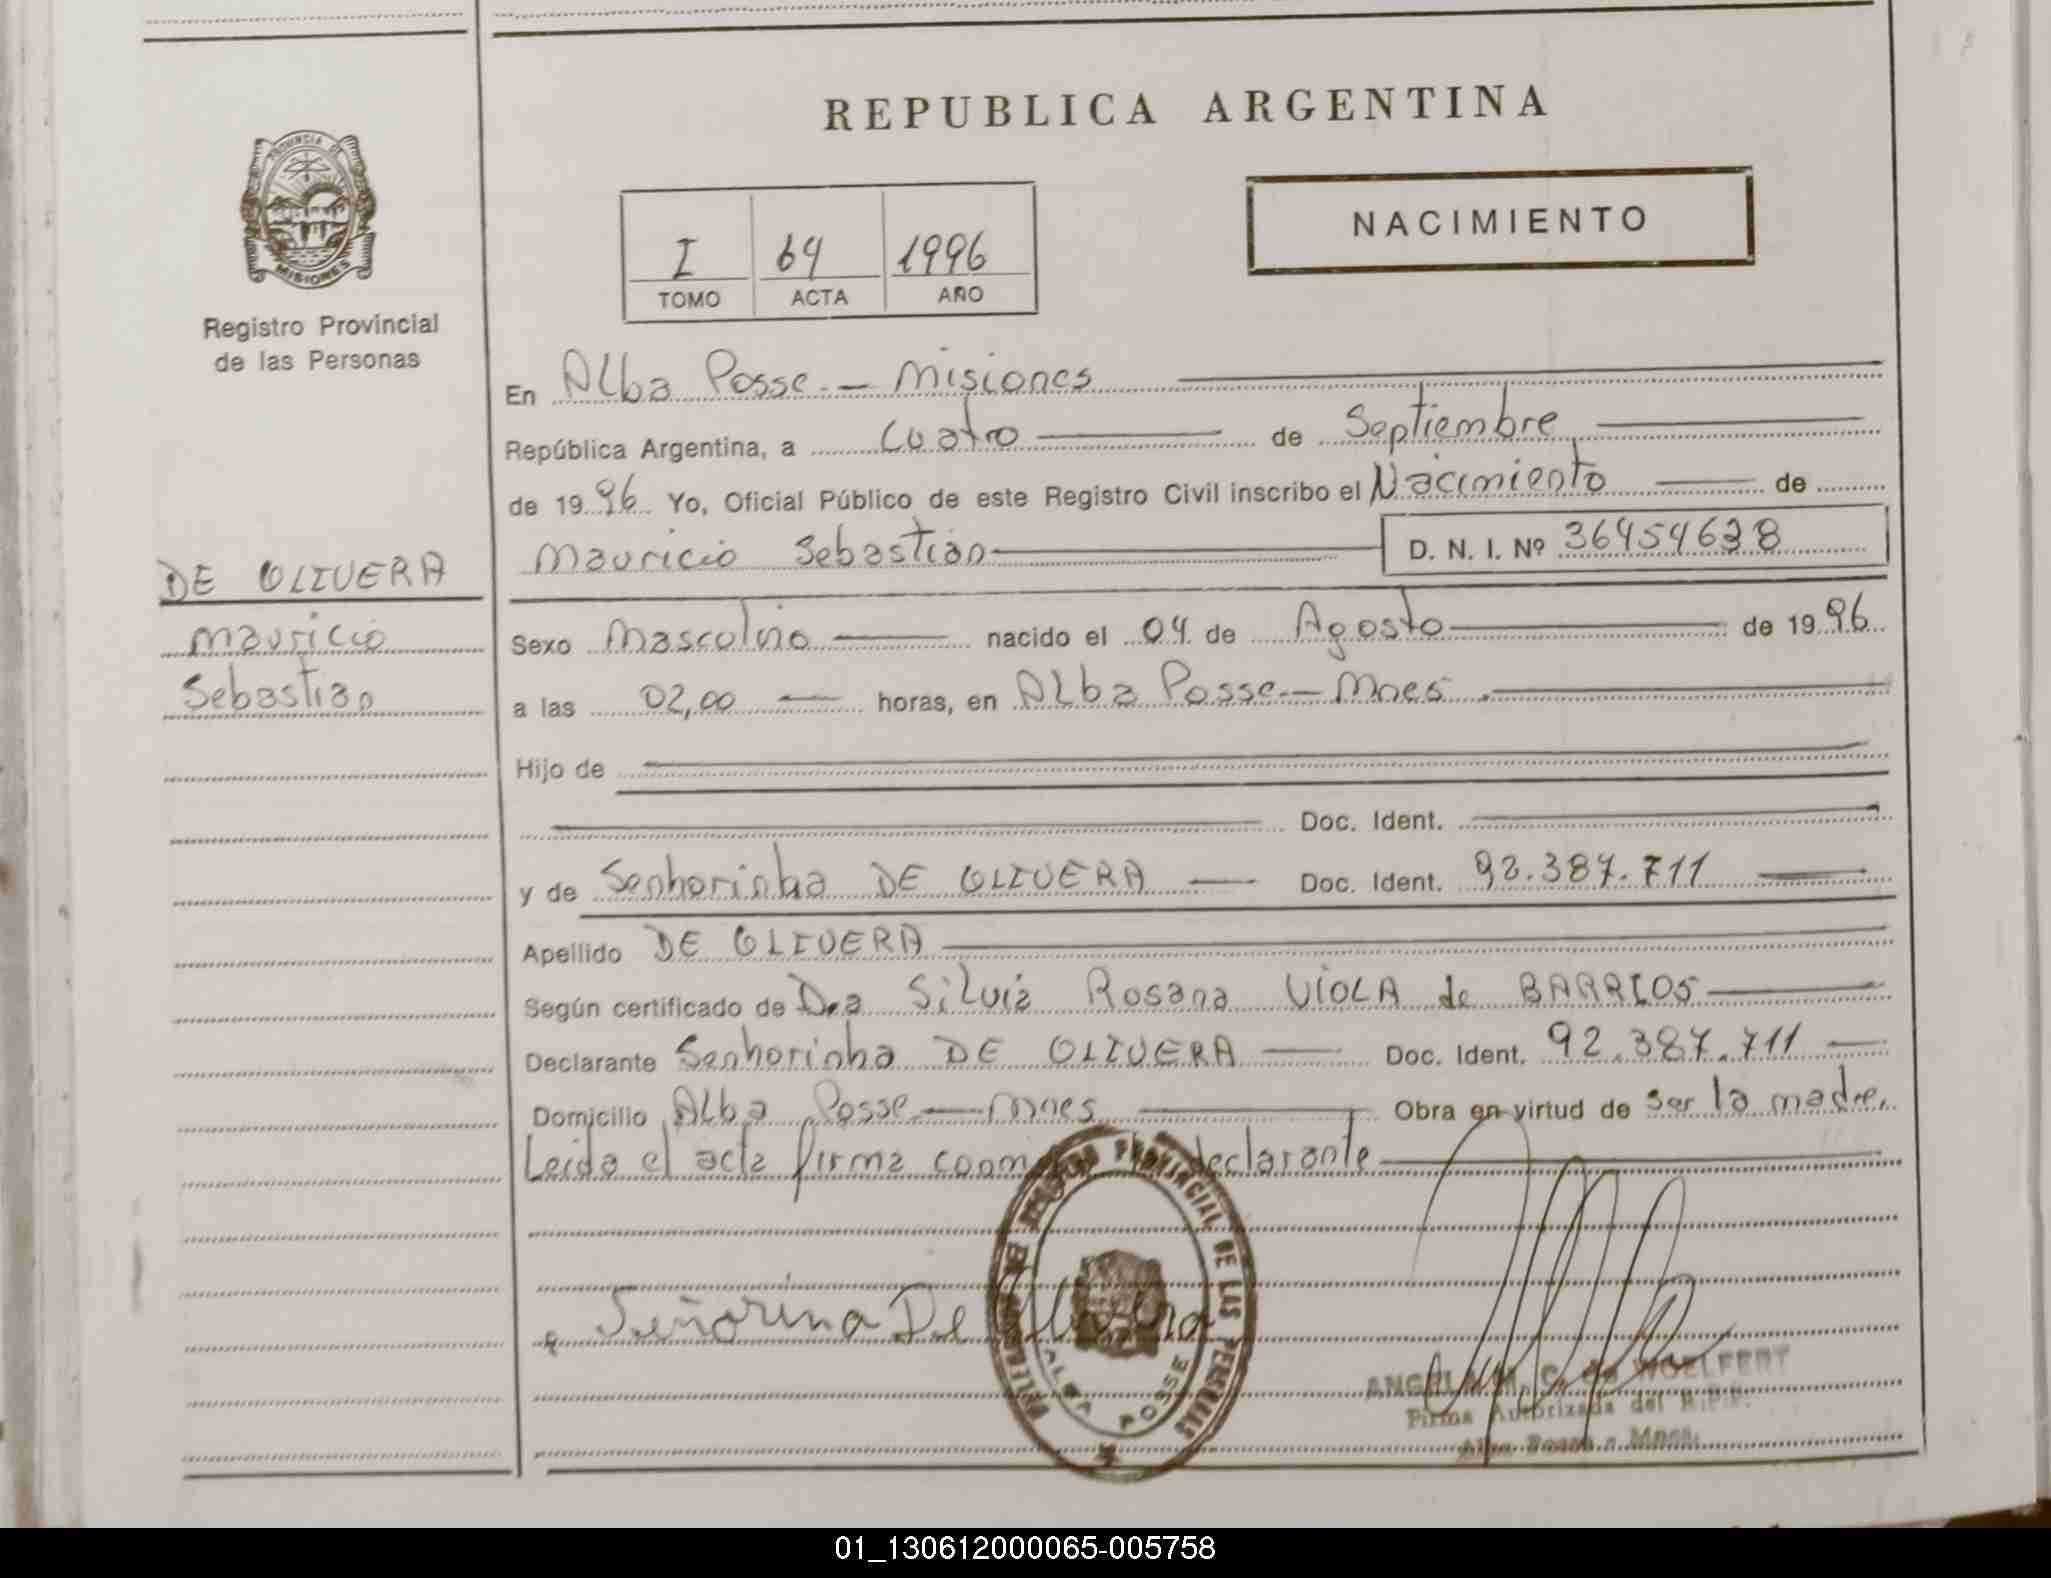 REPUBLICA ARGENTINA
PROVINCIA DE
MISIONES
Registro Provincial
de las Personas
I 64 1996
TOMO ACTA AÑO
NACIMIENTO
En Alba Posse.- Misiones
República Argentina, a Cuatro de Septiembre
de 1996 Yo, Oficial Público de este Registro Civil inscribo el Nacimiento de
Mauricio Sebastian D. N. I. Nº 36454638
DE OLIVERA
Mauricio
Sebastian
Sexo Masculino nacido el 04 de Agosto de 1996
a las 02,00 horas, en Alba Posse.- Mnes.
Hijo de
Doc. Ident.
y de Senhorinha DE OLIVERA Doc. Ident. 92.387.711
Apellido DE OLIVERA
Según certificado de Dra Silvia Rosana VIOLA de BARRIOS
Declarante Senhorinha DE OLIVERA Doc. Ident. 92.387.711
Domicilio Alba Posse.- Mnes. Obra en virtud de ser la madre.
Leida el acta firma declarante
Señorina De
PROVINCIAL DE LAS PERSONAS
ALBA POSSE
C. de WOELFERT
Firma Autorizada del R.P.P.
Alba Posse - Mnes.
01_130612000065-005758